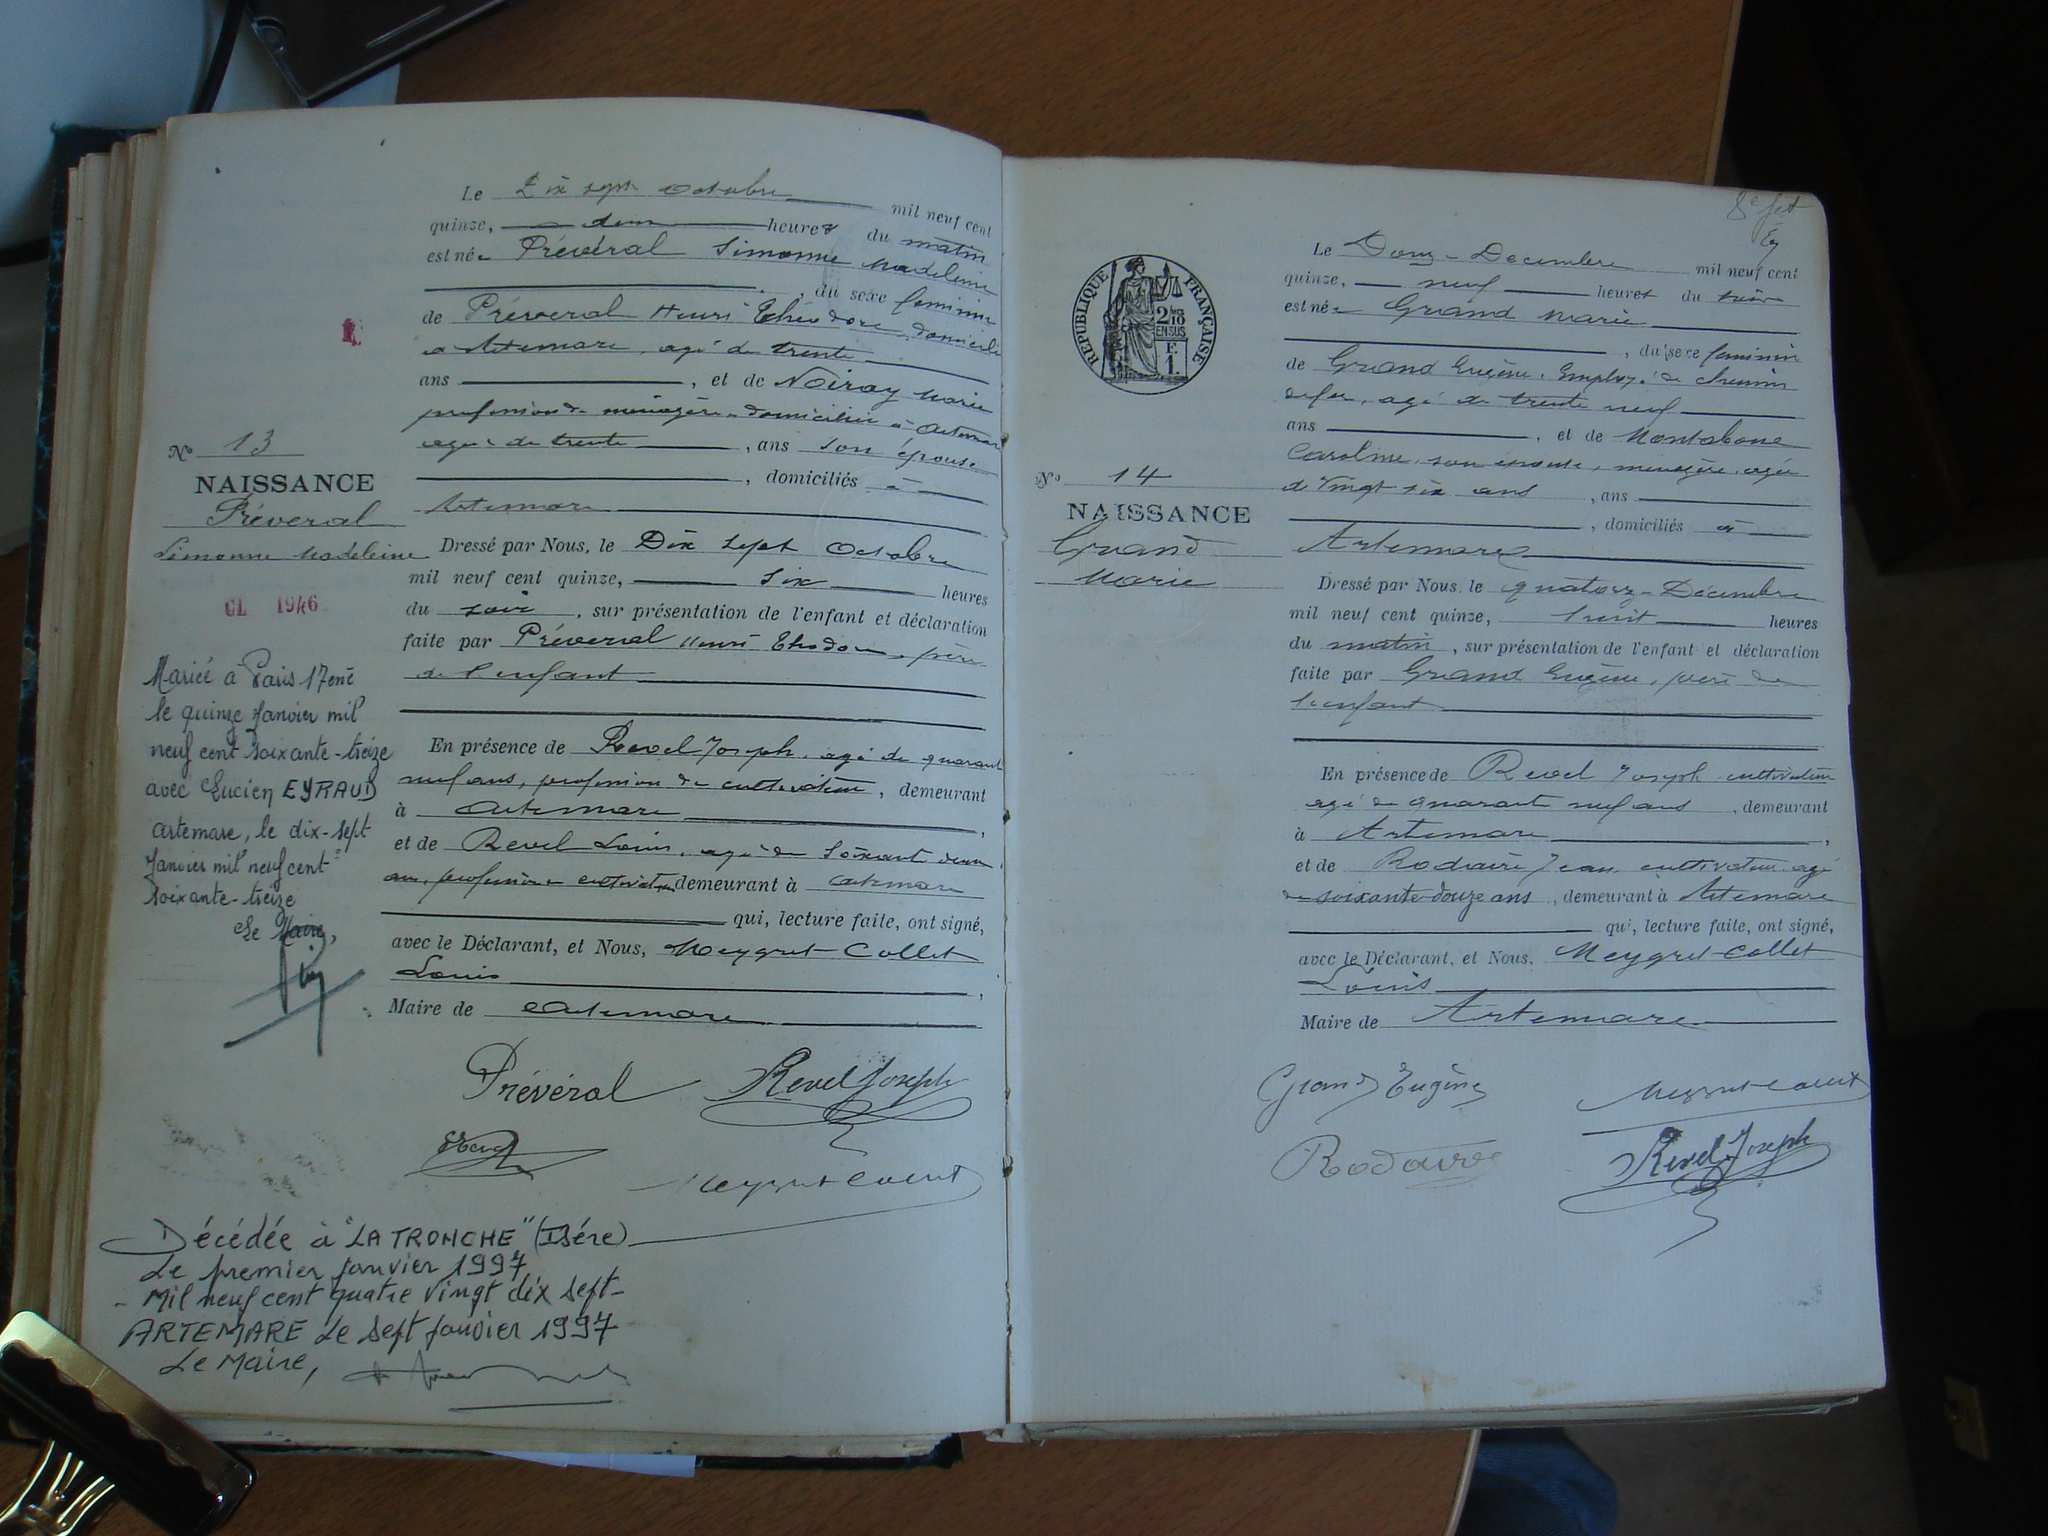 Le Dix sept Octobre mil neuf cent
quinze, deux heures du matin
est née Prévéral Simonne Madeleine
, du sexe feminin
de Préveral Henri Théodore, domicilié
à Artemare, agé de trente
ans , et de Noiray Marie
profession de menagère domiciliée à Artemare
agée de trente , ans son épouse
, domiciliés à
Artemare
N° 13
NAISSANCE
Préveral
Simonne Madeleine
CL 1946
Dressé par Nous, le Dix sept Octobre
mil neuf cent quinze, six heures
du soir , sur présentation de l'enfant et déclaration
faite par Préveral Henri Thodore, père
de l'enfant
En présence de Revel Joseph, agé de quarante
neuf ans, profession de cultivateur, demeurant
à Artemare ,
et de Revel Louis, agé de soixante deux
ans, profession cultivateur demeurant à Artemare
qui, lecture faite, ont signé,
avec le Déclarant, et Nous, Meygret-Collet
Louis ,
Maire de Artemare
Mariée à Paris 17eme
le quinze Janvier mil
neuf cent soixante-treize
avec Lucien EYRAUD
Artemare, le dix-sept
Janvier mil neuf cent
soixante-treize
Le Maire,
Prévéral Revel Joseph
Meygret-Collet
Décédée à "LA TRONCHE" (Isére)
Le premier janvier 1997
- Mil neuf cent quatre vingt dix sept -
ARTEMARE Le sept janvier 1997
Le Maire,
8e fet
RÉPUBLIQUE FRANÇAISE
2/10
EN SUS
F.
1.
Le Douze Decembre mil neuf cent
quinze, neuf heures du soir
est née Grand Marie
, du sexe feminin
de Grand Eugène, Employé de chemin
de fer, agé de trente neuf
ans , et de Montabone
Caroline, son épouse, ménagère, agée
de vingt six ans , ans
, domiciliés à
Artemare
N° 14
NAISSANCE
Grand
Marie
Dressé par Nous, le quatorze Décembre
mil neuf cent quinze, huit heures
du matin , sur présentation de l'enfant et déclaration
faite par Grand Eugène, père de
l'enfant
En présence de Revel Joseph cultivateur
agé de quarante neuf ans , demeurant
à Artemare ,
et de Rodaire Jean, cultivateur agé
de soixante-douze ans , demeurant à Artemare
qui, lecture faite, ont signé,
avec le Déclarant, et Nous, Meygret-Collet
Louis
Maire de Artemare
Grand Eugène Meygret-Collet
Rodaire Revel Joseph